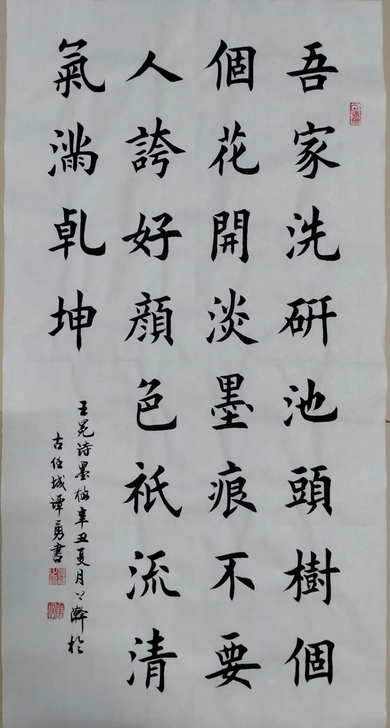 吾家洗研池頭樹個
個花開淡墨痕不要
人誇好顔色祇流清
氣滿乹坤
王冕詩墨梅辛丑夏月於
古任城譚勇書